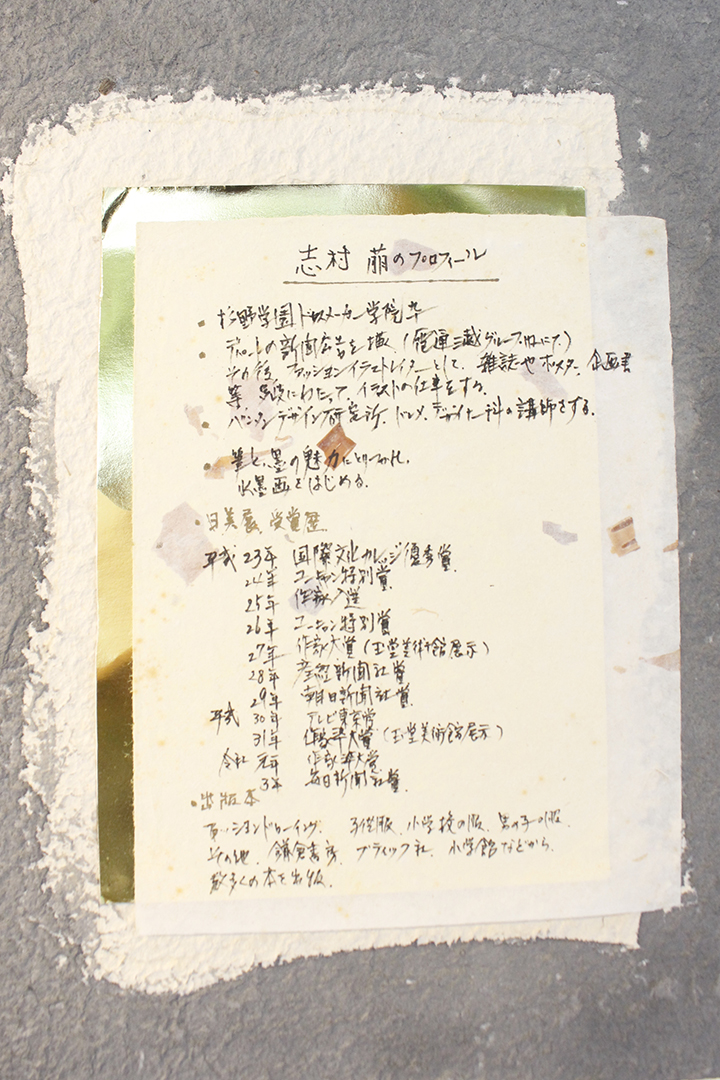 志村 萠のプロフィール
・杉野学園ドレスメーカー学院卒
・デパートの新聞広告を描く(三越グループ
その後、ファッションイラストレイターとして、雑誌やポスター、企画書
等 多岐にわたって、イラストの仕事をする。
バンタンデザイン研究所、ドレメ、デザイナー科の講師をする。
・筆と墨の魅力にとりつかれ、
水墨画をはじめる。
・日美展 受賞歴
平成 23年 国際文化カレッジ優秀賞
24年 ユーキャン特別賞
25年 作家入選
26年 ユーキャン特別賞
27年 作家大賞(玉堂美術館展示)
28年 産経新聞社賞
29年 朝日新聞社賞
平成 30年 テレビ東京賞
31年 作家準大賞(玉堂美術館展示)
令和 元年 作家準大賞
3年 毎日新聞社賞
・出版本
ファッションドローイング、 子供服、小学校の服、男の子の服
その他、鎌倉書房、ブティック社、小学館などから
数多くの本を出版。